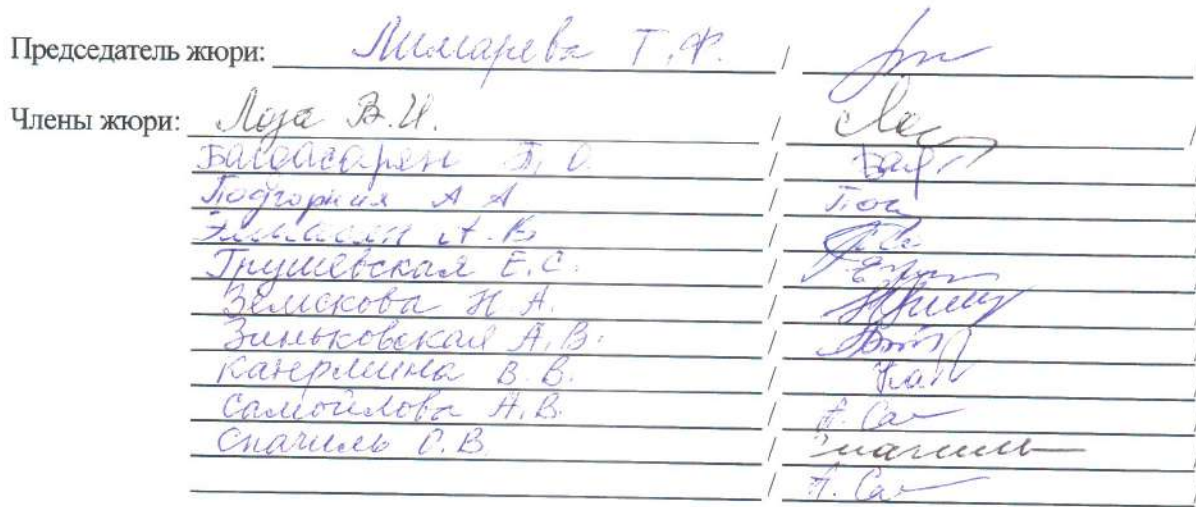 Председатель жюри: Лимарева Т.Ф. /
Члены жюри: Лоза В.И. /
Багдасарян Т. О. /
Подгорная А А / Под
А.В /
Грушевская Е.С. /
Земскова Н.А. /
Зиньковская А.В. /
В.В. /
Самойлова А.В. / А. Са
Спачиль О.В. / Спачиль
/ А. Са